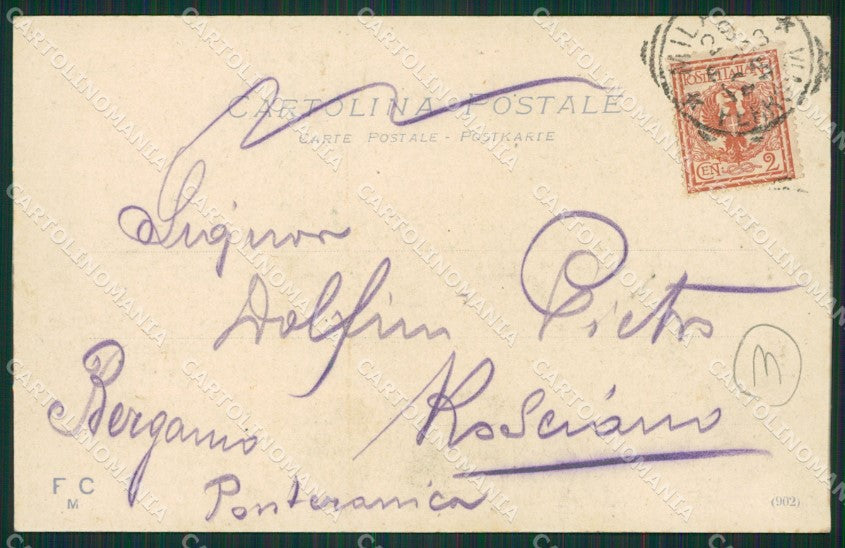 CARTOLINA POSTALE
CARTE POSTALE - POSTKARTE
POSTE ITALIANE
CEN. 2
Signor
Dolfini Pietro
Rosciano
Bergamo
Ponteranica
3
F C
M
(902)
CARTOLINOMANIA